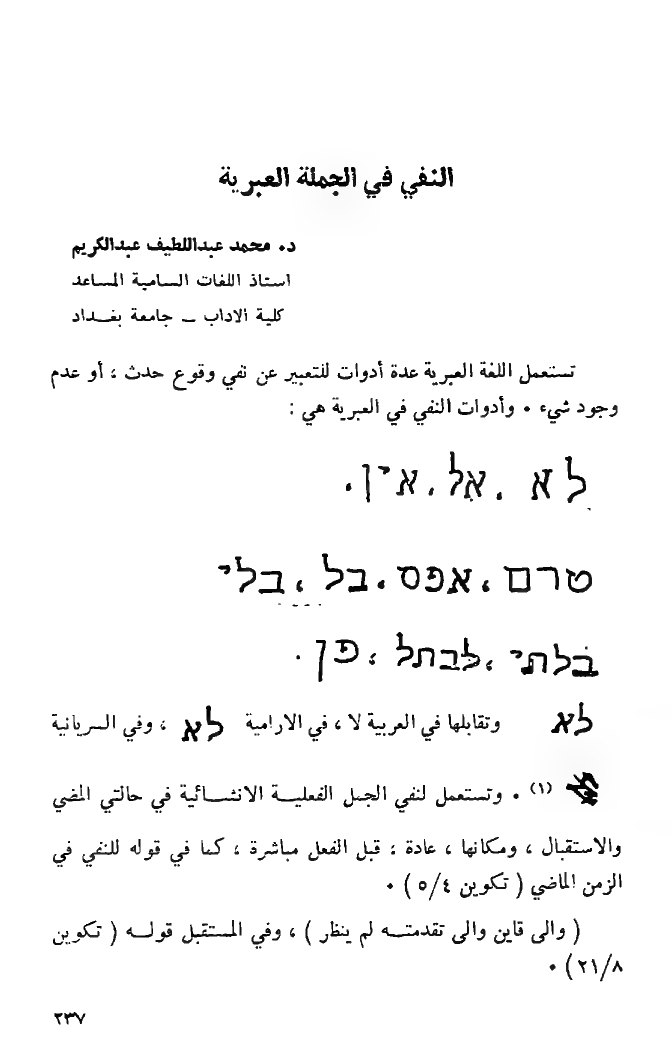 النفي في الجملة العبرية
د. محمد عبداللطيف عبدالكريم
استاذ اللغات السامية المساعد
كلية الاداب – جامعة بغداد
تستعمل اللغة العبرية عدة أدوات للتعبير عن نفي وقوع حدث ، أو عدم
وجود شيء . وأدوات النفي في العبرية هي :
לא ، אל ، אין .
טרם ، אפס ، בל ، בלי
בלתי ، לבתל ، פן .
לא وتقابلها في العربية لا ، في الارامية לא ، وفي السريانية
(١) . وتستعمل لنفي الجمل الفعلية الانشائية في حالتي المضي
والاستقبال ، ومكانها ، عادة ، قبل الفعل مباشرة ، كما في قوله للنفي في
الزمن الماضي ( تكوين ٥/٤ ) .
( والى قاين والى تقدمته لم ينظر ) ، وفي المستقبل قوله ( تكوين
٢١/٨ ) .
٢٣٧